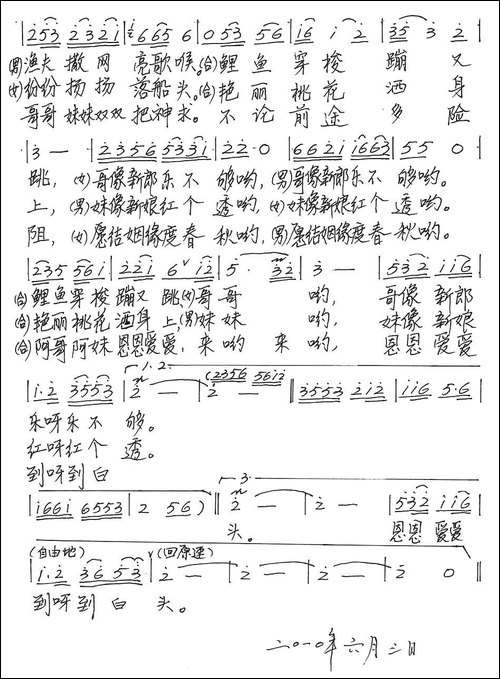 253 2321 | 6 6655 6 | 0 53 56 | 16 i 2 | 35 3 2 |
(男)渔夫 撒网 亮歌喉。(合)鲤鱼 穿梭 蹦又
(女)纷纷 扬扬 落船头。(合)艳丽 桃花 洒身
哥哥 妹妹双双 把神求。不论 前途 多险
| 3 — | 2356 5331 | 22·0 | 6621 1663 | 55 0 |
跳，(女)哥像新郎乐不够哟，(男)哥像新郎乐不够哟。
上，(男)妹像新娘红个透哟，(女)妹像新娘红个透哟。
阻，(女)愿结姻缘度春秋哟，(男)愿结姻缘度春秋哟。
| 235 561 | 221 6 12 | 5· 32 | 3 — | 532 116 |
(合)鲤鱼穿梭蹦又跳，(女)哥哥哟，哥像新郎
(合)艳丽桃花洒身上，(男)妹妹哟，妹像新娘
(合)阿哥阿妹恩恩爱爱，来哟来哟，恩恩爱爱
1.2.
| 1·2 3553 | 2 — | (2356 5612 2 — ‖ 3553 212 | 116 5·6 |
乐呀乐不够。
红呀红个透。
到呀到白
3.
| 1661 6553 | 2 56) ‖ 2 — | 2 — | 532 116 |
头。 恩恩爱爱
(自由地) (回原速)
| 1·2 36 53 | 2 — | 2 — | 2 — | 2 0 ‖
到呀到白头。
二〇一〇年六月三日